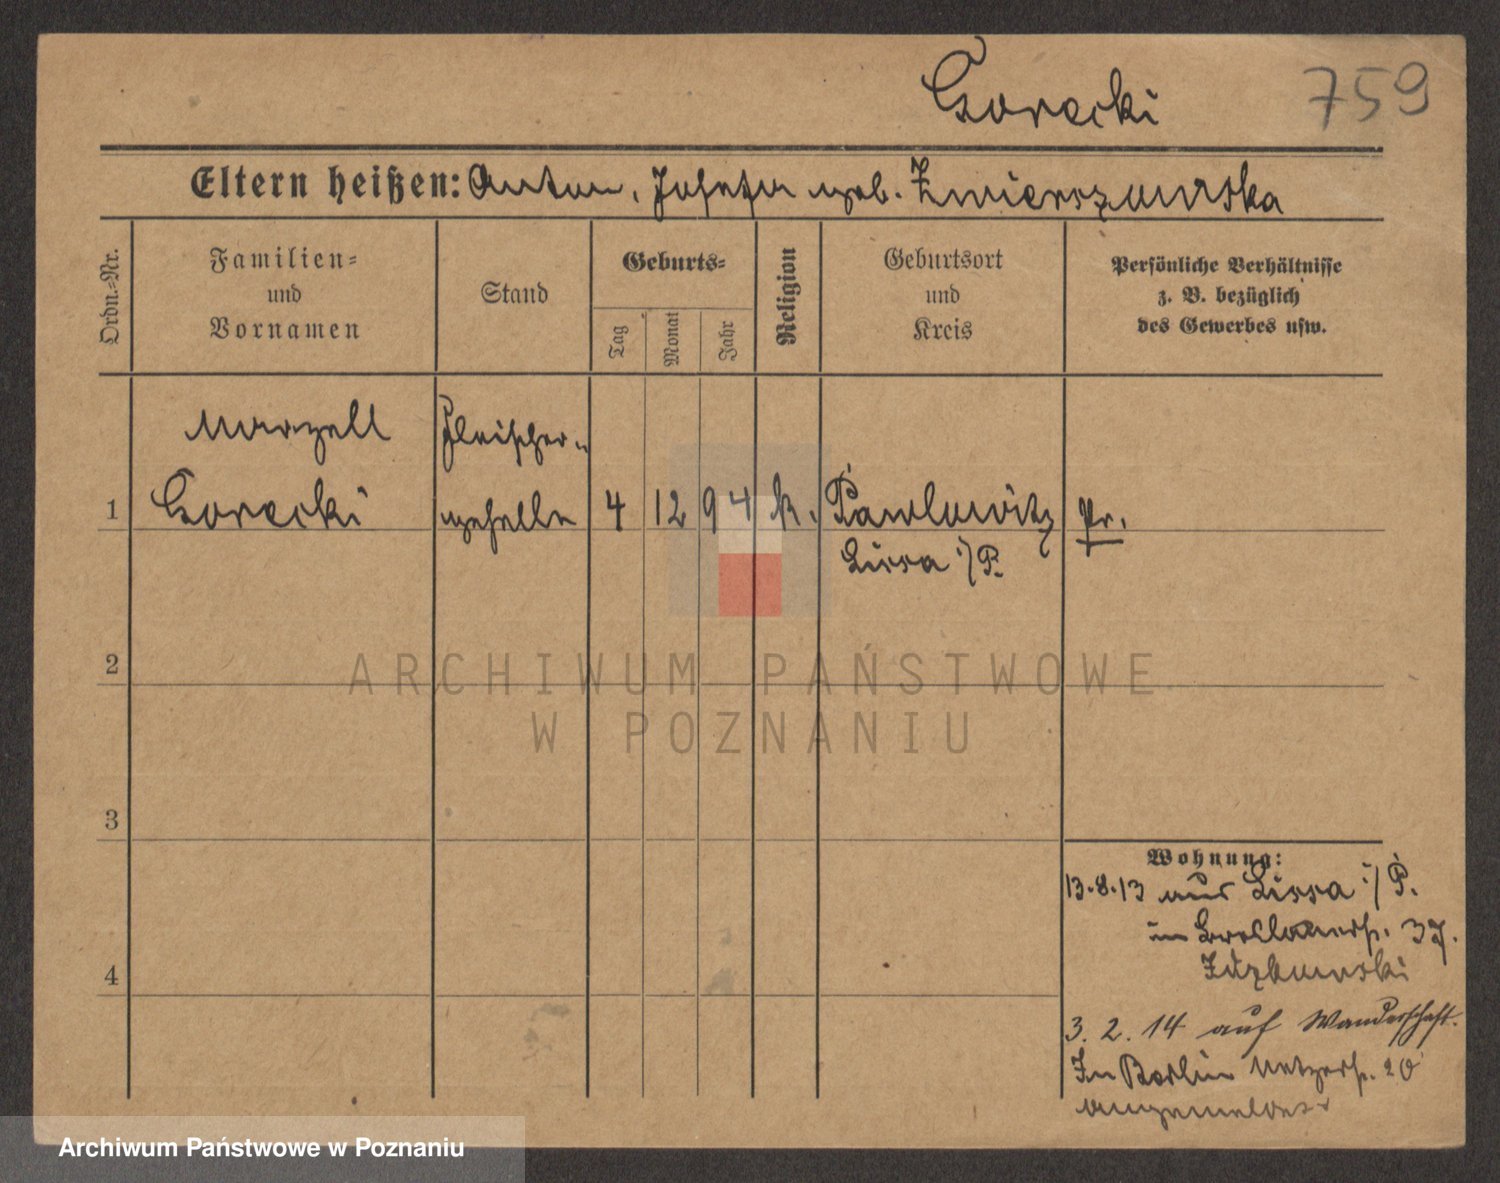 Gorecki
759
Eltern heißen: Anton, Josefa geb. Zwierszowska
Ordn.-Nr.
Familien-
und
Vornamen
Stand
Geburts-
Tag
Monat
Jahr
Religion
Geburtsort
und
Kreis
Persönliche Verhältnisse
z. B. bezüglich
des Gewerbes usw.
Marzell Fleischer-
1 Gorecki geselle 4 12 94 k. Pawlowitz Pr.
Lissa i/P.
2
ARCHIWUM PAŃSTWOWE
W POZNANIU
3
Wohnung:
13.8.13 aus Lissa i/P.
in 37.
4
3. 2. 14 auf Wanderschaft.
In Berlin Netzerstr. 20
angemeldet
Archiwum Państwowe w Poznaniu